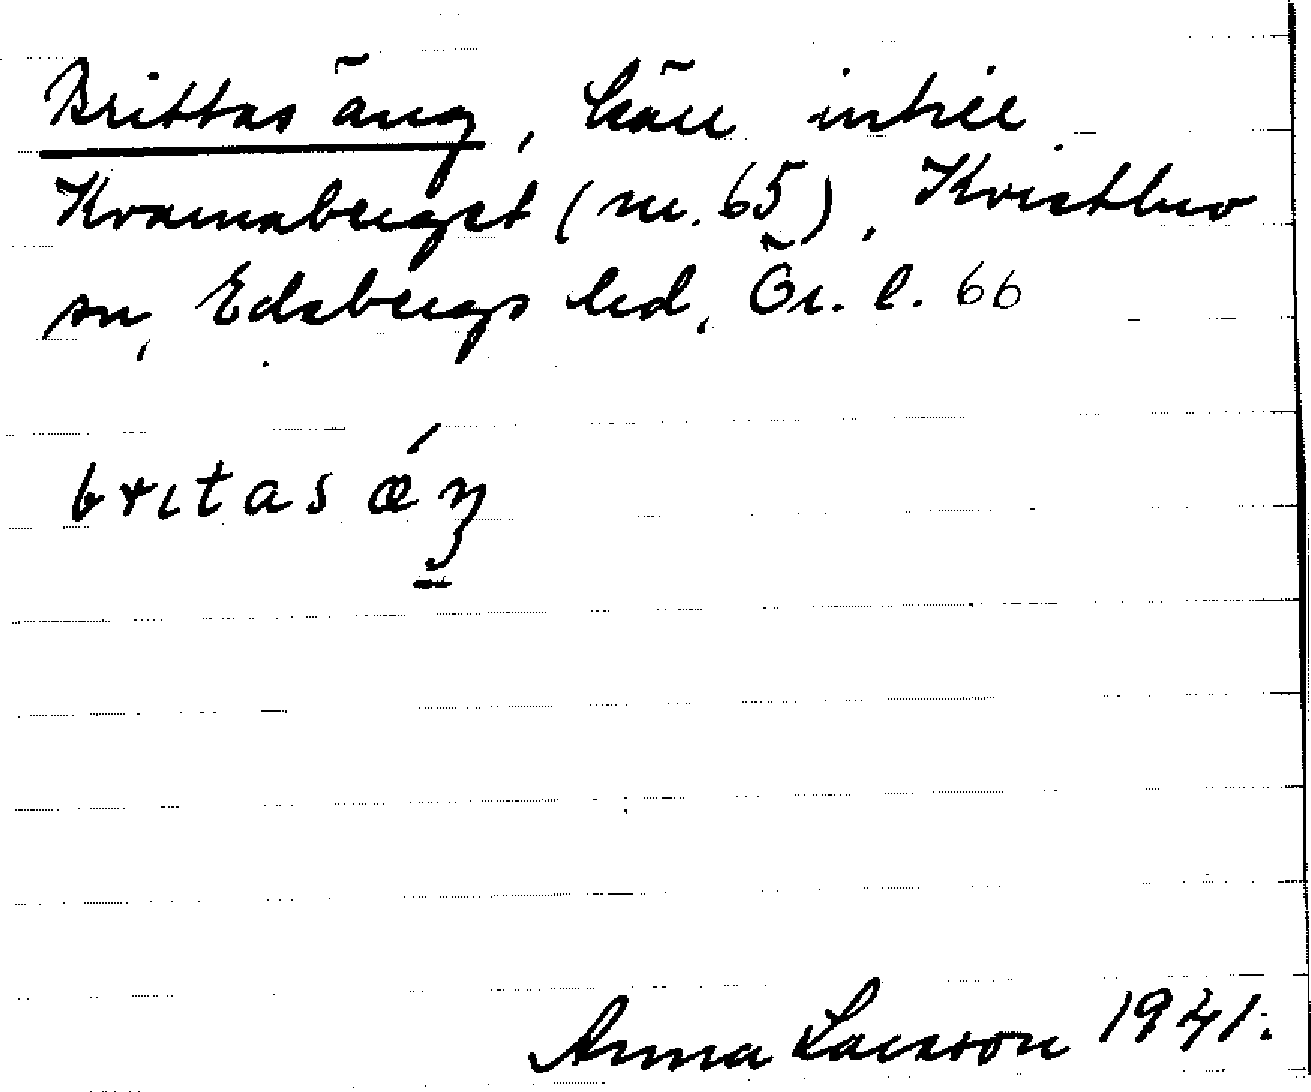 Brittas äng, kärr intill
Kramaberget (nr. 65), Kvistbro
sn, Edsbergs hd, Ör. l. 66
britas æ´ŋ
Anna Larsson 1941.